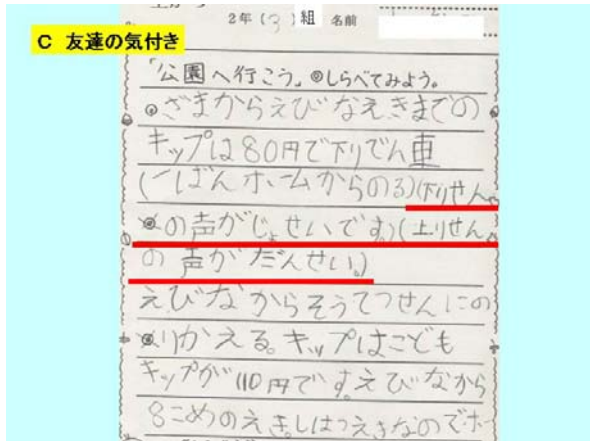 C 友達の気付き
2年(3)組 名前
「公園へ行こう」◎しらべてみよう。
◎ざまからえびなえきまでの
キップは80円で下りでん車
(一ばんホームからのる)(下りせん
の声がじょせいです。)(上りせん
の声がだんせい。)
えびなからそうてつせんにの
りかえる。キップはこども
キップが110円です。えびなから
8こめのえき。しはつえきなのでホー